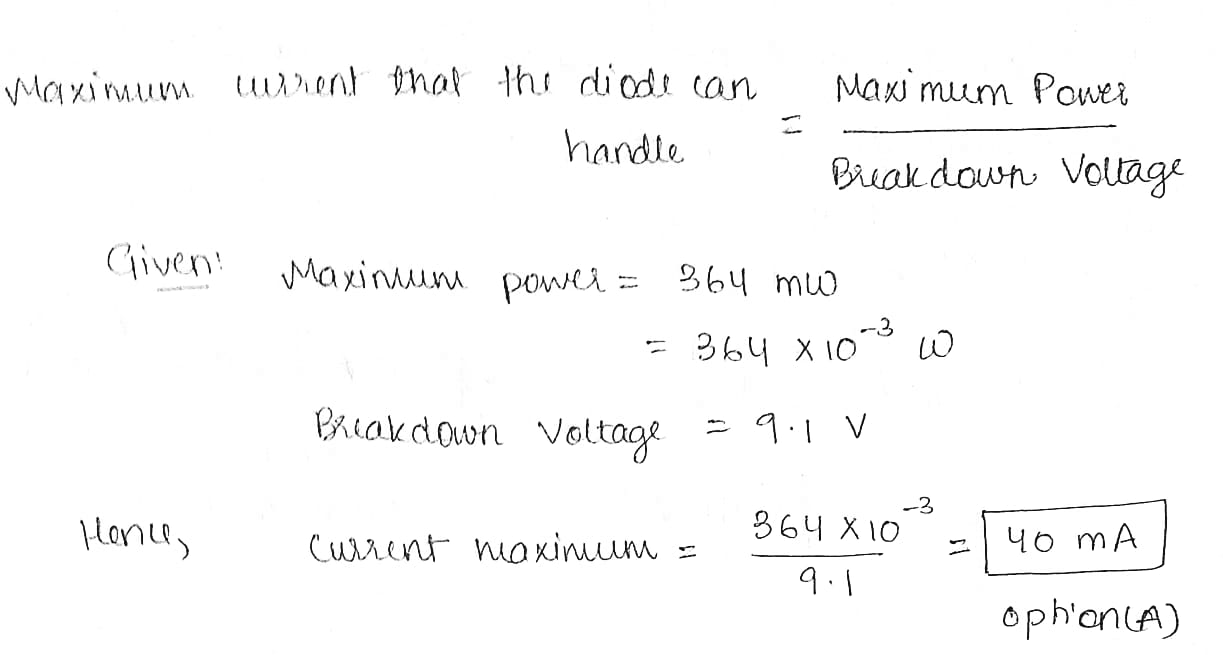 Maximum current that the diode can handle = Maximum Power / Breakdown Voltage
Given: Maximum power = 364 mW
= 364 × 10⁻³ W
Breakdown Voltage = 9.1 V
Hence, Current maximum = 364 × 10⁻³ / 9.1 = 40 mA
option (A)